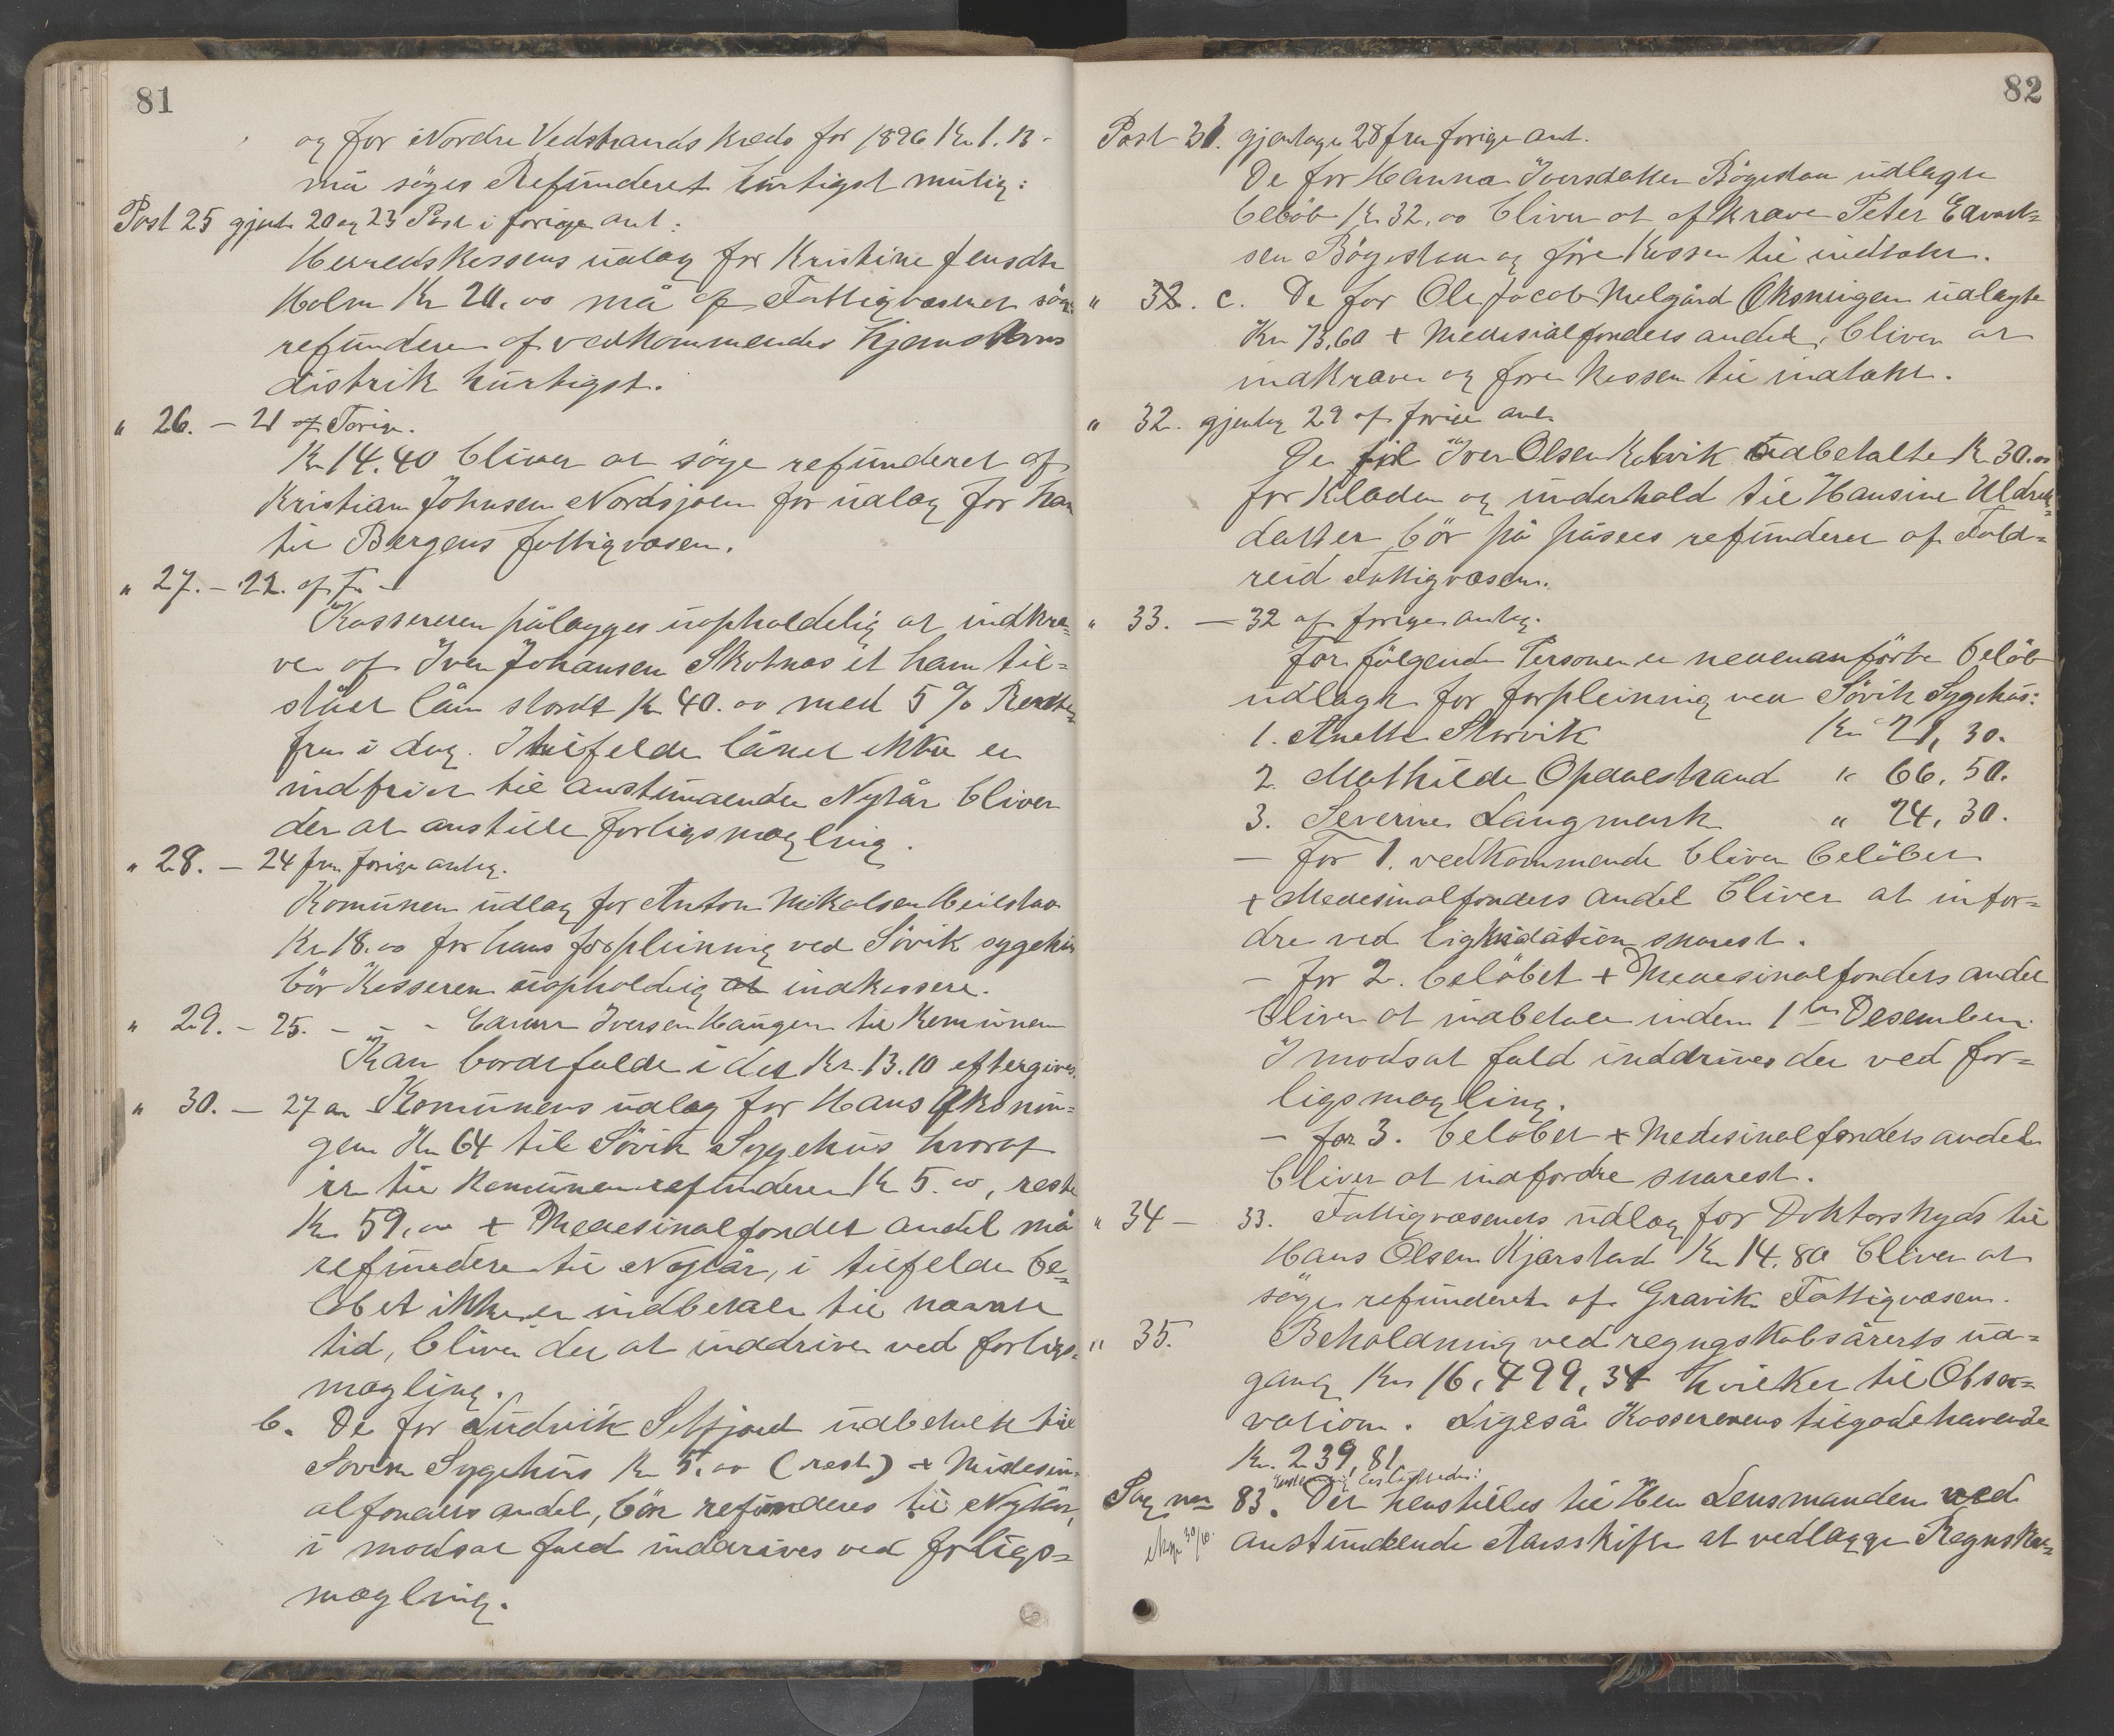 81
og for Nordre Vedstrands Kreds for 1896 Kr 1.13 -
må söges Refunderet hurtigst mulig:
Post 25 gjent. 20 og 23 Post i forige ant:
Herredskassens udlæg for Kristine Jensdtr
Holm Kr 20.00 må af Fattigvæsenet søg:
refunderes af vedkommendes hjemstavns
distrikt hurtigst.
" 26. — 21 af Forige.
Kr 14.40 bliver at söge refunderet af
Kristian Johnsen Nordsjoen for udlæg for ham
til Bergens fattigvæsen.
" 27. - 22. af F. -
Kassereren pålægges uopholdelig at indkræ=
ve af Iver Johansen Skotnes et ham til=
stået lån stordt Kr 40.00 med 5 % Rendter
fra i dag. I tilfelde lånet ikke er
indfriet til anstundende Nytår bliver
der at anstille forligsmægling.
" 28. — 24 fra forige antg.
Komunen udlæg for Anton Nikolsen Heilstao
Kr 18.00 for hans forpleining ved Sövik sygehus
bör Kasseren uopholdig at indkassere.
" 29. - 25. - - - Iversen Haugen til Komunen
Kan bordtfalde i det Kr. 13.10 eftergives.
" 30. — 27 a Komunens udlæg for Hans Oksnin=
gen Kr 64 til Sövik Sygehus hvoraf
er til Komunen refunderet Kr 5.00, reste
Kr 59,00 + Medesinalfondet andel må
refundere til Nytår, i tilfelde be=
löbet ikke er indbetalt til nævnte
tid, bliver det at inddrive ved forligs-
mægling.
b. De for Ludvik Selfjord udbetalt til
Sövik Sygehus Kr 5.00 (rest) + Midesin-
alfondets andel, bör refunderes til Nytår,
i modsat fald inddrives ved forligs=
mægling.
82
Post 31. gjentage 28 fra forige ant.
De for Hanna Iversdatter Bögestau udlagte
belöb Kr 32,00 bliver at afkræve Peter Edvart=
sen Bögestau og före Kassen til indtækt.
" 32. c. De for Ole Jacob Melgård Oksningen udlagte
Kr 13,60 + Medesialfondets andel, bliver at
indkræve og före Kassen til indtækt.
" 32. gjentag 29 af forige ant.
De til Iver Olsen Kolvik udbetalte Kr 30.00
for Klæder og underhold til Hansine Uldriks=
datter bör på påsees refunderet af Fold=
reid Fattigvæsen.
" 33. — 32 af forige anteg.
For fölgende Personer er nedenanförte belöb
udlagt for forpleining ved Sövik Sygehus:
1. Anette Storvik Kr 21,30.
2. Mathilde Opdalstrand " 66,50.
3. Severine Langmark " 24,30.
— For 1. vedkommende bliver belöbet
+ Medesinalfondets andel bliver at infor=
dre ved ligkvidation snarest.
- for 2. belöbet + Medesinalfondets andel
bliver at indbetale inden 1ste Desember.
I modsat fald inddrives det ved for=
ligsmægling.
- for 3. belöbet + Medesinalfondets andel
bliver at indfordre snarest.
" 34 — 33. Fattigvæsenets udlæg for Doktorskyds til
Hans Olsen Kjærstad Kr 14.80 bliver at
söge refunderet af Gravik Fattigvæsen.
" 35. Beholdning ved regngskabsårerts ud=
gang Kr 16,499,34 hvilket til Obser=
vation. Ligeså Kassererens tilgodehavende
Kr. 239,81.
Enstemmig besluttedes:
Sag no 83. Det henstilles til Hr Lensmanden ved
anstundende Aarsskifte at vedlægge Regnska=